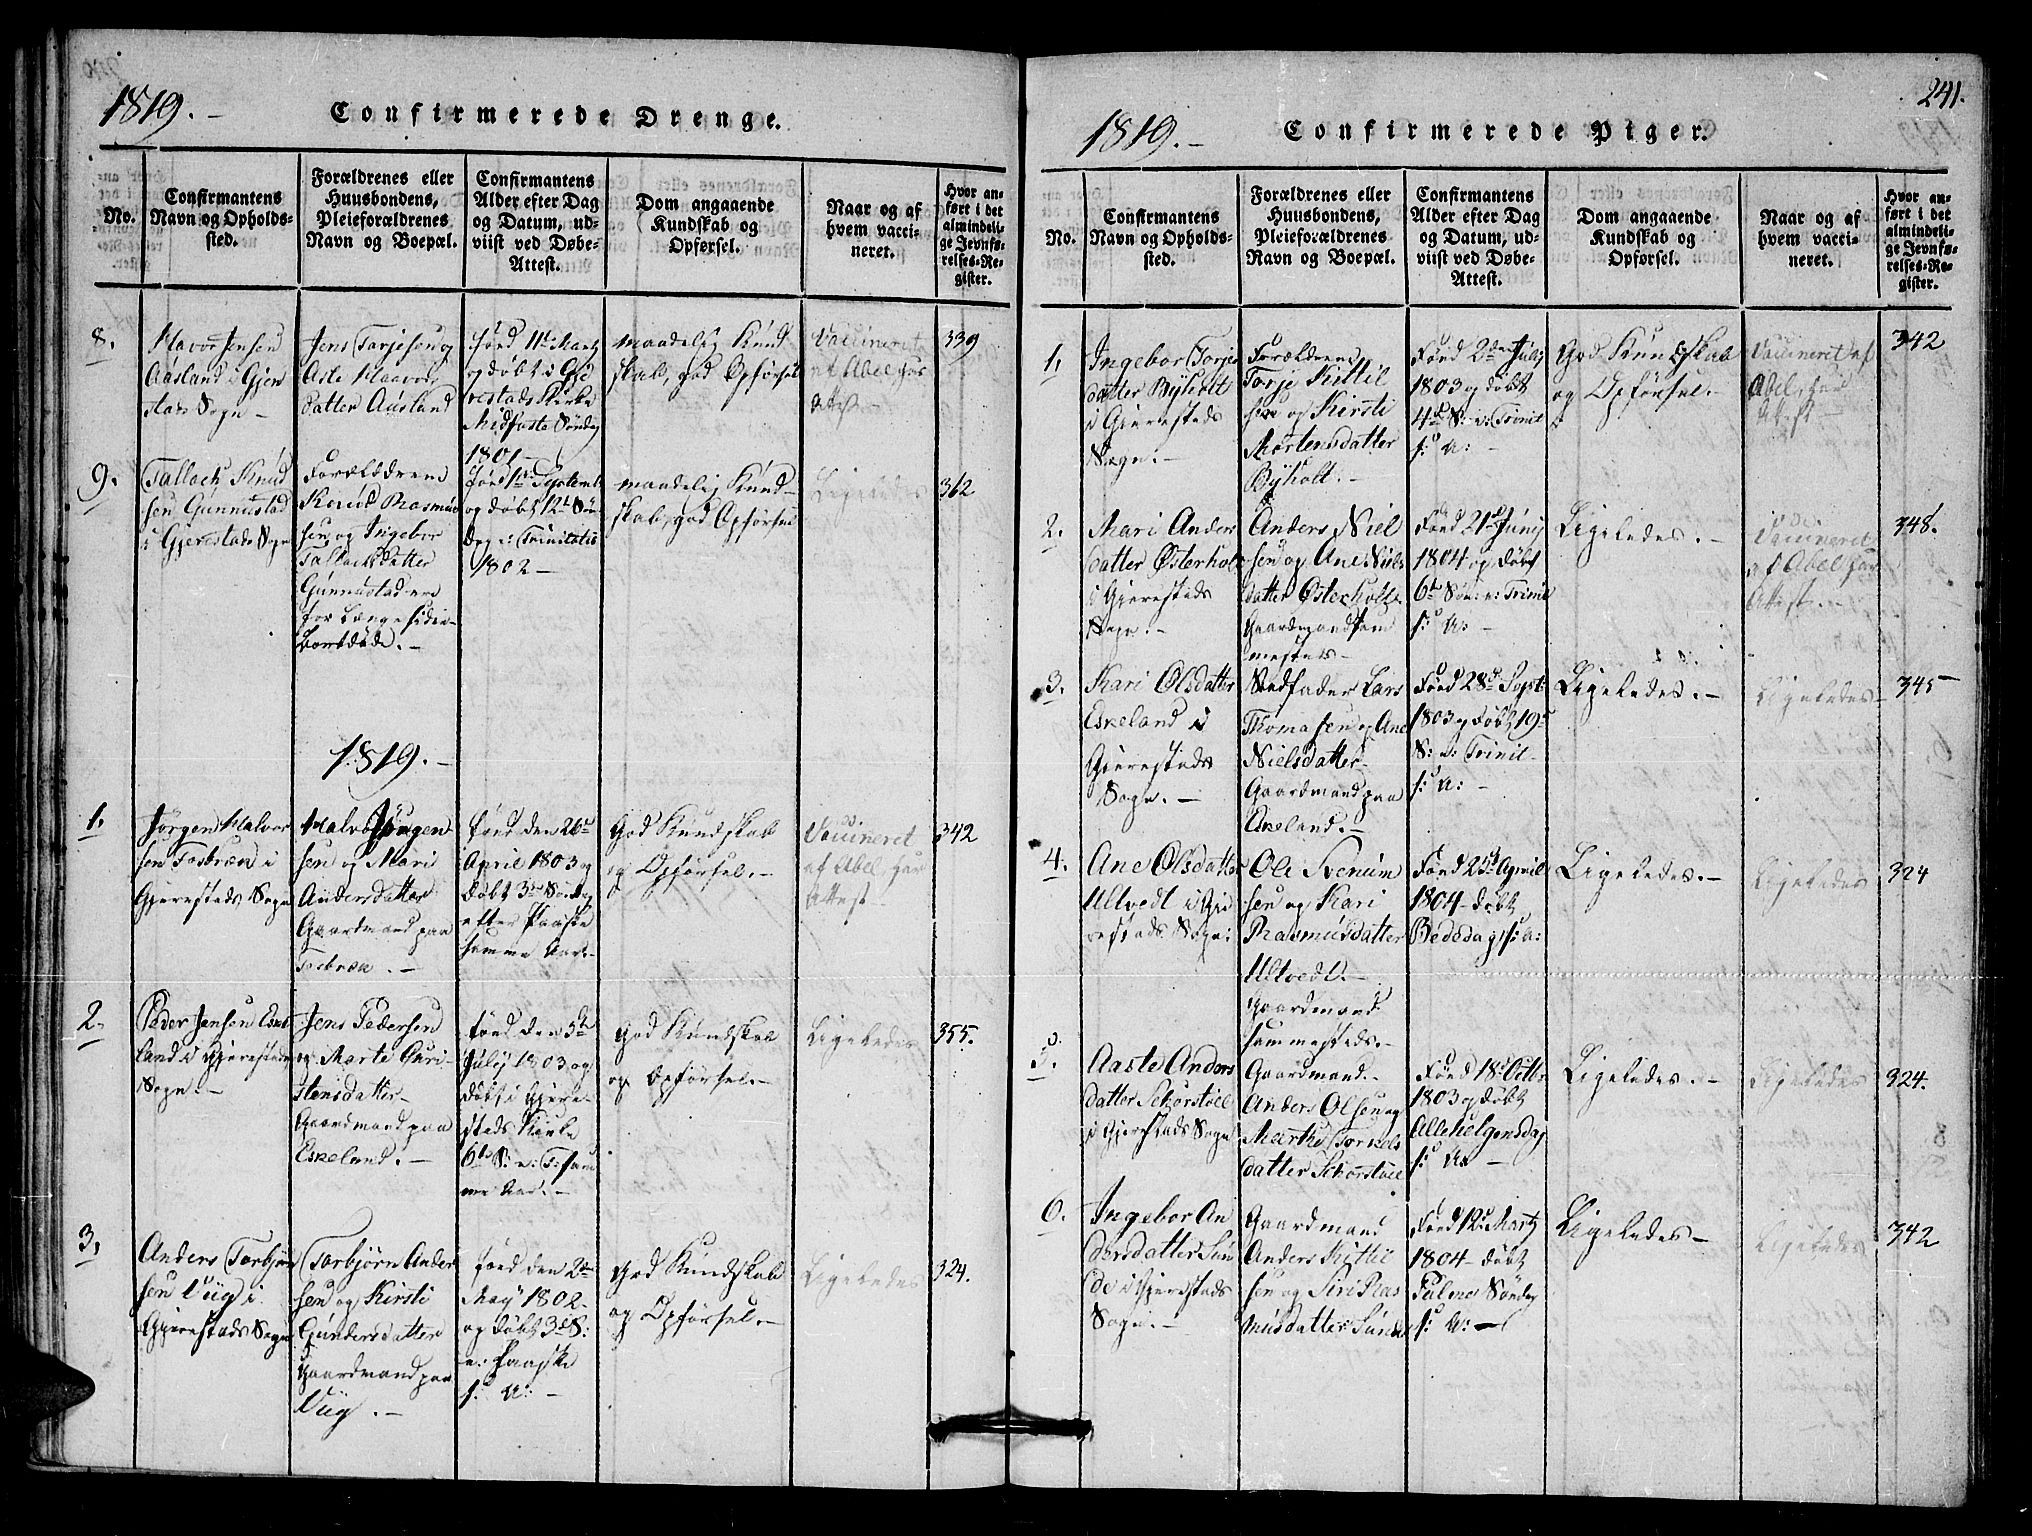 1819.-
Confirmerede Drenge.
No.
Confirmantens
Navn og Opholds-
sted.
Forældrenes eller
Huusbondens,
Pleieforældrenes
Navn og Boepæl.
Confirmantens
Alder efter Dag
og Datum, ud-
viist ved Døbe-
Attest.
Dom angaaende
Kundskab og
Opførsel.
Naar og af
hvem vacci-
neret.
Hvor an-
ført i det
almindeli-
ge Jevnfø-
relses-Re-
gister.
8.
Havor Jensen
Aasland i Gjer
stads Sogn -
Jens Tarjesen og
Asle Haavors
datter Aasland
Fød 11te Martz
og døbt i Gje
restads Kirke
Midfaste Søndag
1801 -
maadelig Kund
skab, god Opførsel
Vaccineret
af Abel, har
Attest -
339
9.
Tallach Knud
sen
i Gjerestads Sogn
Forældrene
Knud Rasmus
sen og Ingebor
Tallaksdatter
ere
for Længe siden
bortdøde. -
Fød 1te Septemb
og døbt 12te Søn
dag e: Trinitatis
1802 -
maadelig Kund-
skab, god Opførsel
Ligeledes
362
1819. -
1.
Jørgen Halvor
sen Fosbræn i
Gjerestads Sogn
Halvor Jørgen
sen og Mari
Andersdatter
Gaardmand paa
Fosbræn. -
Fød den 26de
April 1803 og
døbt 3de Søndag
efter Paaske
samme Aar. -
God Kundskab
og Opførsel. -
Vaccineret
af Abel, har
Attest -
342
2.
Peder Jensen Eske
land i Gjerestads
Sogn. -
Jens Pedersen
og Marte Chri-
stensdatter -
Gaardmand paa
Eskeland. -
Fød den 3de
July 1803 og
døbt i Gjere-
stads Kirke
6te S: e: T: sam
me Aar. -
God Kundskab
og Opførsel. -
Ligeledes
355.
3.
Anders Torbjørn
sen Viig i
Gjerestads Sogn
Torbjørn Ander
sen og Kirsti
Gundersdatter
Gaardmand paa
Viig. -
Fød den 2den
May 1802 -
og døbt 3de S:
e: Paaske
s: A: -
God Kundskab
og Opførsel. -
Ligeledes
324.
241.
1819. -
Confirmerede Piger.
No.
Confirmantens
Navn og Opholds-
sted.
Forældrenes eller
Huusbondens,
Pleieforældrenes
Navn og Boepæl.
Confirmantens
Alder efter Dag
og Datum, ud-
viist ved Døbe-
Attest.
Dom angaaende
Kundskab og
Opførsel.
Naar og af
hvem vacci-
neret.
Hvor an-
ført i det
almindeli-
ge Jevnfø-
relses-Re-
gister.
1.
Ingebor Torjes
datter Byholt
i Gjerestads
Sogn. -
Forældrene
Torje Kittil
sen og Kirsti
Mortensdatter
Byholt. -
Fød 2den July
1803 og døbt
4de S: e: Trinit
s: A: -
God Kundskab
og Opførsel. -
Vaccineret af
Abel, har
Attest -
342
2.
Mari Anders
datter Østerholt
i Gjerestads
Sogn. -
Anders Niel
sen og Ane Niels
datter Østerholt
Gaardmand sam
mesteds -
Fød 21de Junij
1804 og døbt
6te Søn: e: Trinit
s: A: -
Ligeledes. -
Vaccineret
af Abel har
Attest. -
348.
3.
Kari Olsdatter
Eskeland i
Gjerestads
Sogn. -
Stedfader Lars
Thomasen og Ane
Nielsdatter
Gaardmand paa
Eskeland. -
Fød 28de Sept:
1803 og døbt 19de
S: e: Trinit-
s: A: -
Ligeledes. -
Ligeledes -
345
4.
Ane Olsdatter
Ultvedt i Gje
restads Sogn:
Ole Svenum
sen og Kari
Rasmusdatter
Ultvedt. -
Gaardmand
sammesteds. -
Fød 25de April
1804 - døbt
Bededag s: A:
Ligeledes. -
Ligeledes
324
5.
Aaste Anders
datter Schorstøel
i Gjerestads Sogn
Gaardmand -
Anders Olsen og
Marthe Torkels
datter Schorstøel
Fød 18de Octbr
1803 og døbt
Allehelgensdag
s: A: -
Ligeledes. -
Ligeledes
324.
6.
Ingebor An
dersdatter Sun
de i Gjerestads
Sogn. -
Gaardmand
Anders Kittil
sen og Siri Ras
musdatter Sunde
Fød 12de Martz
1804 - døbt
Palme Søndag
s: A: -
Ligeledes -
Ligeledes
342